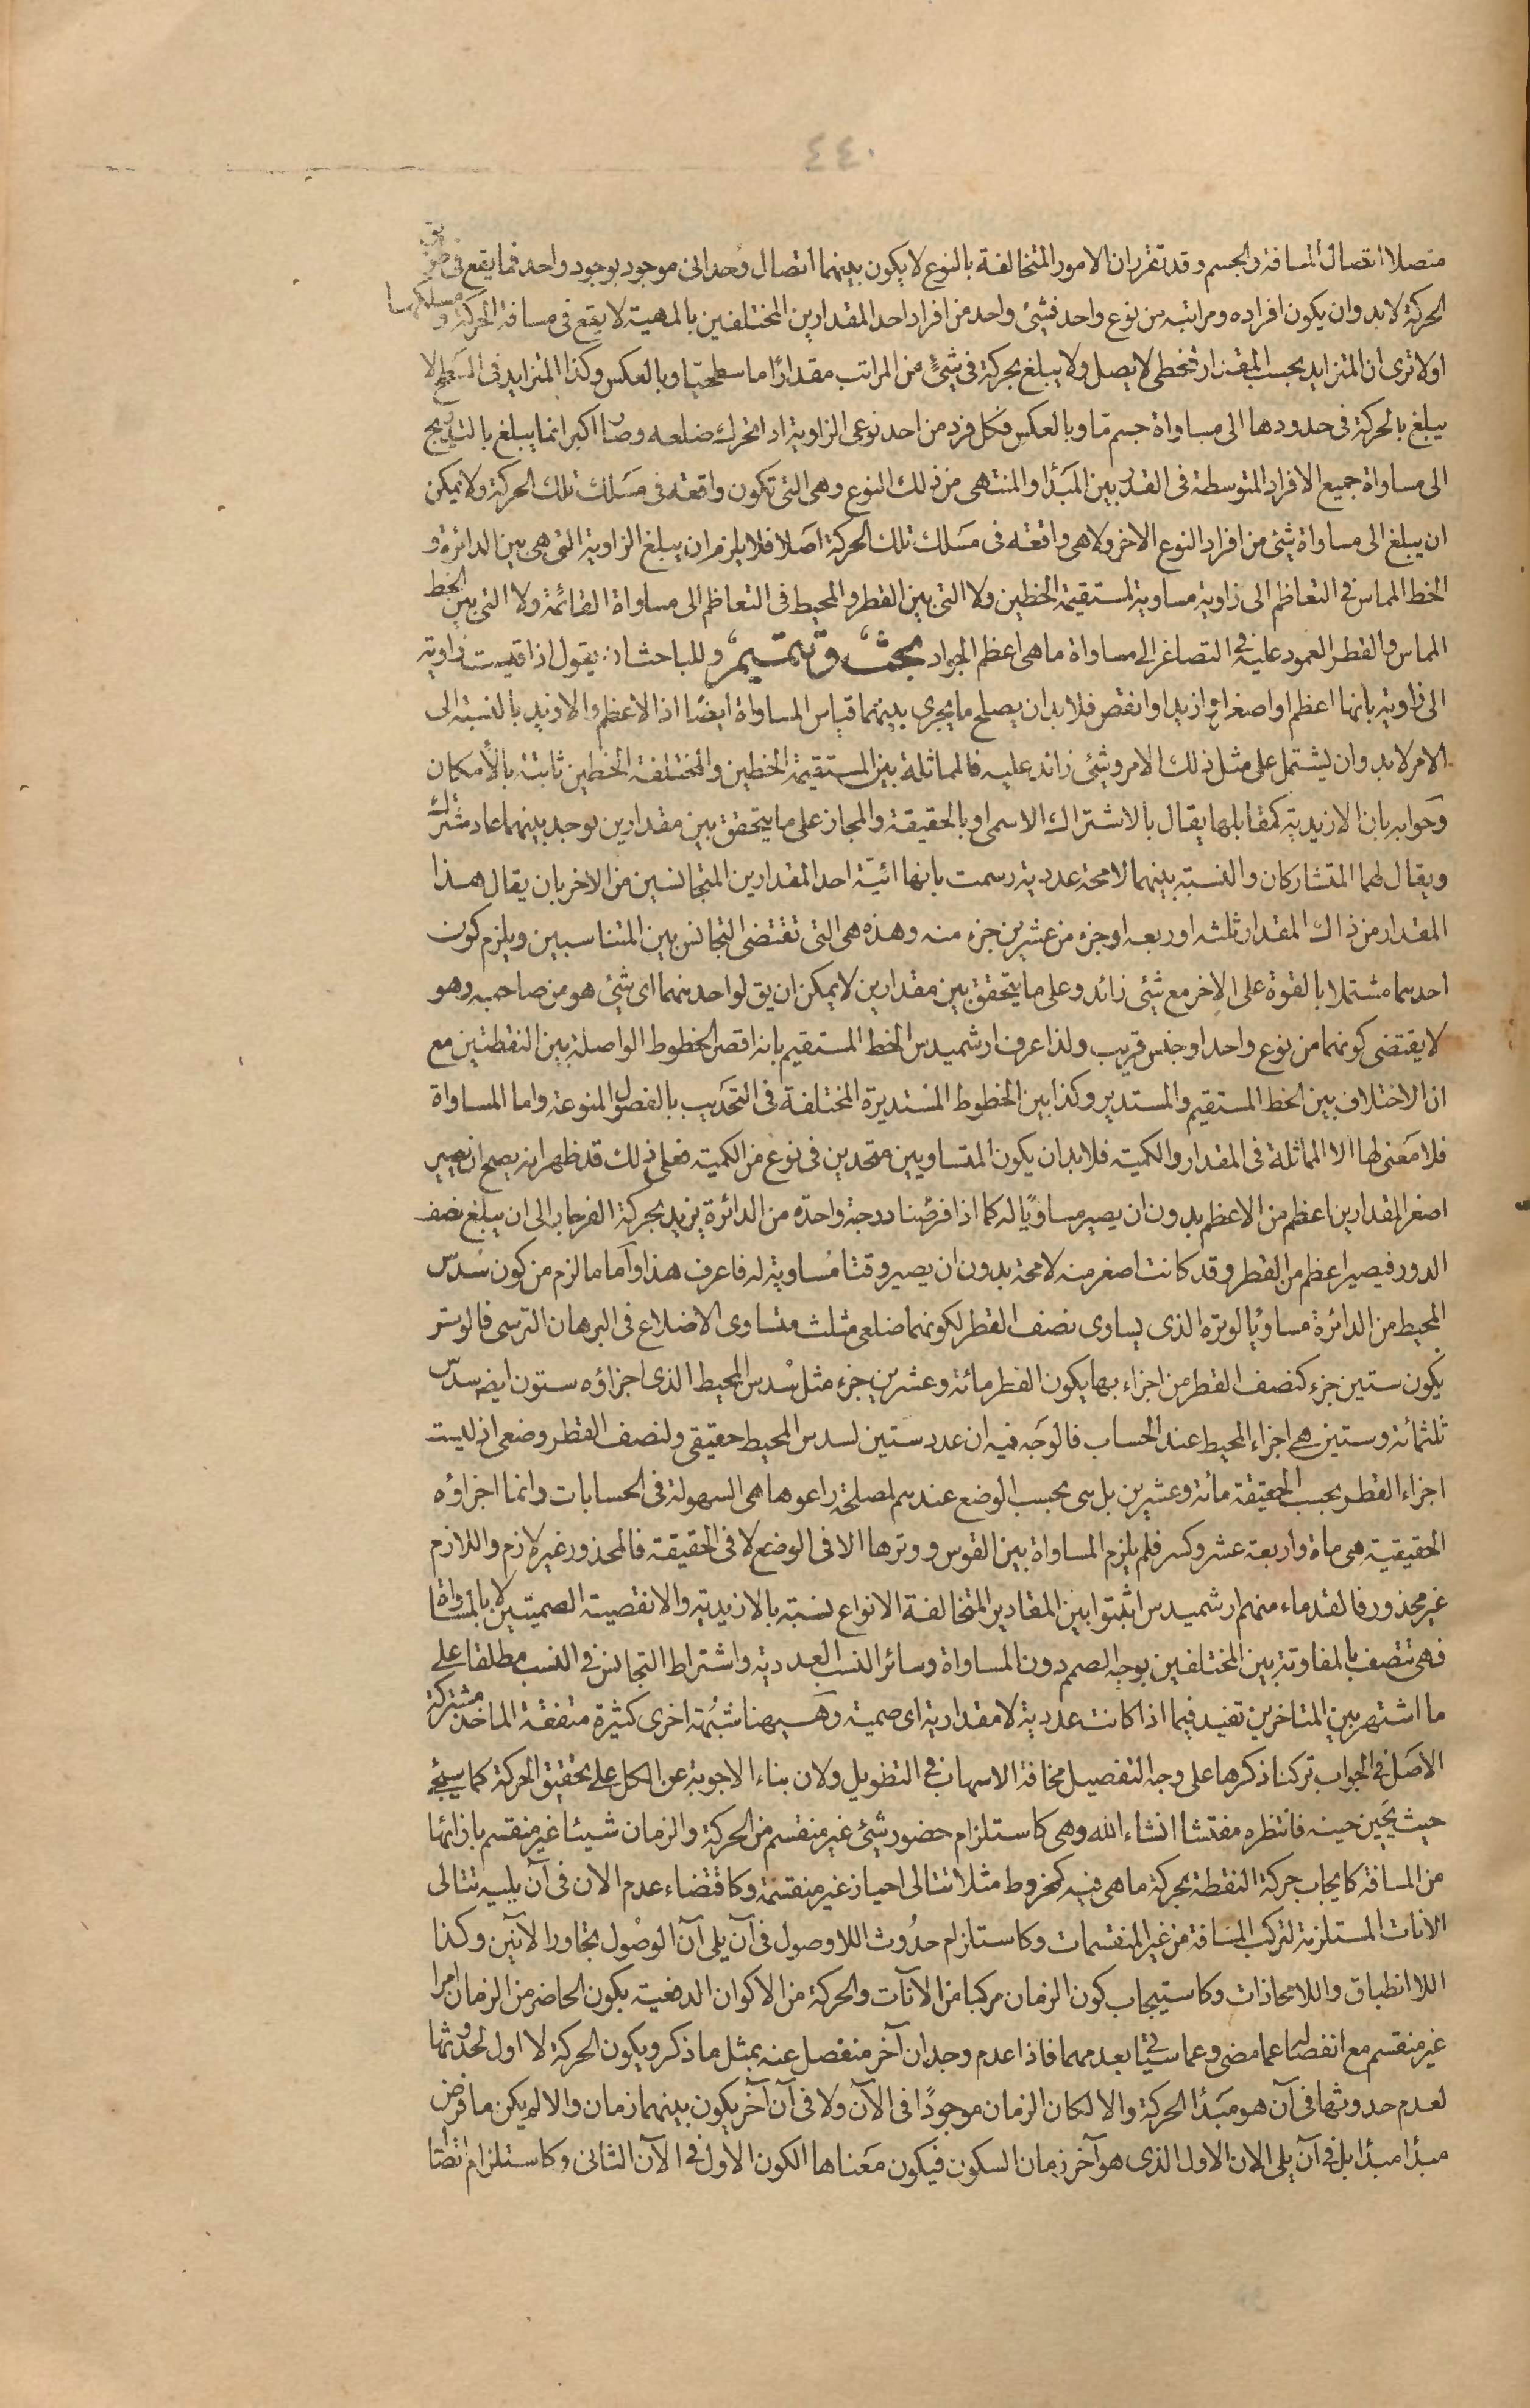 ٤٤٠
متصلا اتصال المسافة والجسم وقد تقرر ان الامور المتخالفة بالنوع لا يكون بينهما اتصال وحدانى موجود بوجود واحد فما يقع فى طريق
الحركة لابد وان يكون افراده ومراتبه من نوع واحد فشئ واحد من افراد احد المقدارين المختلفين بالمهية لا يقع فى مسافة الحركة ومسلكهما
اولا ترى ان المتزايد بحسب المقدار الخطى لا يصل ولا يبلغ بحركة فى شئ من المراتب مقدارًا ما سطحيا وبالعكس وكذا المتزايد فى السطح لا
يبلغ بالحركة فى حدودها الى مساواة جسم مّا وبالعكس فكل فرد من احد نوعى الزاوية اذا تحرك ضلعه وصار اكبر انما يبلغ بالتدريج
الى مساواة جميع الافراد المتوسطة فى القدر بين المبدأ والمنتهى من ذلك النوع وهى التى تكون واقعة فى مسلك تلك الحركة ولا يمكن
ان يبلغ الى مساواة شئ من افراد النوع الاخر ولا هى واقعة فى مسلك تلك الحركة اصلا فلا يلزم ان يبلغ الزاوية التى هى بين الدائرة و
الخط المماس فى التعاظم الى زاوية مساوية لمستقيمة الخطين ولا التى بين القطر والمحيط فى التعاظم الى مساواة القائمة ولا التى بين الخط
المماس والقطر العمود عليه فى التصاغر الى مساواة ما هى اعظم الحواد بحث وتتميم وللباحث ان يقول اذا قيست زاوية
الى زاوية بانها اعظم او اصغر او ازيد او انقص فلابد ان يصلح ما يجرى بينهما قياس المساواة ايضًا اذ الاعظم والازيد بالنسبة الى
الامر لابد وان يشتمل على مثل ذلك الامر وشئ زائد عليه فالمماثلة بين المستقيمة الخطين والمختلفة الخطين ثابتة بالامكان
وجوابه بان الازيدية كمقابلها يقال بالاشتراك الاسمى او بالحقيقة والمجاز على ما يتحقق بين مقدارين يوجد بينهما عاد مشترك
ويقال لهما المتشاركان والنسبة بينهما لامحة عددية رسمت بانها ائية احد المقدارين المتجانسين من الاخر بان يقال هذا
المقدار من ذاك المقدار ثلثه او ربعه او جزء من عشرين جزء منه وهذه هى التى تقتضى التجانس بين المتناسبين ويلزم كون
احدهما مشتملا بالقوة على الاخر مع شئ زائد وعلى ما يتحقق بين مقدارين لا يمكن ان يق لواحد منهما اى شئ هو من صاحبه وهو
لا يقتضى كونهما من نوع واحد او جنس قريب ولذا عرف ارشميدس الخط المستقيم بانه اقصر الخطوط الواصلة بين النقطتين مع
ان الاختلاف بين الخط المستقيم والمستدير وكذا بين الخطوط المستديرة المختلفة فى التحديب بالفصول المنوعة واما المساواة
فلا معنى لها الا المماثلة فى المقدار والكمية فلابد ان يكون المتساويين متحدين فى نوع من الكمية فعلى ذلك قد ظهر انه يصح ان يصير
اصغر المقدارين اعظم من الاعظم بدون ان يصير مساويًا له كما اذا فرضنا درجة واحدة من الدائرة يزيد بحركة الفرجار الى ان يبلغ نصف
الدور فيصير اعظم من القطر وقد كانت اصغر منه لامحة بدون ان يصير وقتا مساوية له فاعرف هذا واما ما لزم من كون سدس
المحيط من الدائرة مساويا لوتره الذى يساوى نصف القطر لكونهما ضلعى مثلث متساوى الاضلاع فى البرهان الترسى فالوتر
يكون ستين جزء كنصف القطر من اجزاء بها يكون القطر مائة وعشرين جزء مثل سدس المحيط الذى اجزاؤه ستون ايض سدس
ثلثمائة وستين هى اجزاء المحيط عند الحساب فالوجه فيه ان عدد ستين لسدس المحيط حقيقى ولنصف القطر وضعى اذ ليست
اجزاء القطر بحسب الحقيقة مائة وعشرين بل هى بحسب الوضع عندهم لمصلحة راعوها هى السهولة فى الحسابات وانما اجزاؤه
الحقيقية هى ماة واربعة عشر وكسر فلم يلزم المساواة بين القوس ووترها الا فى الوضع لا فى الحقيقة فالمحذور غير لازم واللازم
غير محذور فالقدماء منهم ارشميدس اثبتوا بين المقادير المتخالفة الانواع نسبة بالازيدية والانقصية الصميتين لا بالمساواة
فهى تتصف بالمفاوتة بين المختلفين بوجه الصمم دون المساواة وسائر النسب العددية واشتراط التجانس فى النسب مطلقا على
ما اشتهر بين المتاخرين تفيد فيما اذا كانت عددية لا مقدارية اى صمية وهيهنا شبهة اخرى كثيرة متفقة الماخذ مشتركة
الاصل فى الجواب تركنا ذكرها على وجه التفصيل مخافة الاسهاب فى التطويل ولان بناء الاجوبة عن الكل على تحقيق الحركة كما سيجئ
حيث يحين حينه فانتظره مفتشا انشاء الله وهى كاستلزام حضور شئ غير منقسم من الحركة والزمان شيئا غير منقسم بازائها
من المسافة كايجاب حركة النقطة بحركة ما هى فيه كمخروط مثلا تتالى احياز غير منقسمة وكاقتضاء عدم الان فى آن يليه تتالى
الانات المستلزمة لتركب المسافة من غير المنقسمات وكاستلزام حدوث اللاوصول فى آن يلى آن الوصول تجاور الآنين وكذا
اللا انطباق واللا محاذات وكاستيجاب كون الزمان مركبا من الآنات والحركة من الاكوان الدفعية بكون الحاضر من الزمان امرا
غير منقسم مع انفصالها عما مضى وعما سيأتى بعدمهما فاذا عدم وجد ان آخر منفصل عنه بمثل ما ذكر ويكون الحركة لا اول لحدوثها
لعدم حدوثها فى آن هو مبدأ الحركة والا لكان الزمان موجودًا فى الآن ولا فى آن آخر يكون بينهما زمان والا لم يكن ما فرض
مبدأ مبدأ بل فى آن يلى الان الاول الذى هو آخر زمان السكون فيكون معناها الكون الاول فى الآن الثانى وكاستلزام